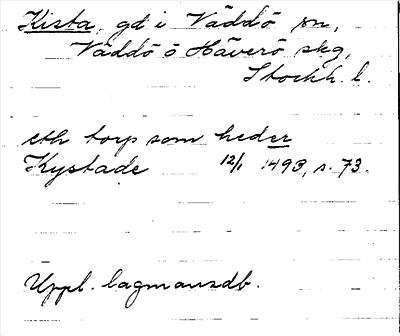 Kista, gd i Väddö sn,
Väddö o Häverö skg,
Stockh. l.
eth torp som heder
Kystade 12/1 1493, s. 73.
Uppl. lagmansdb.